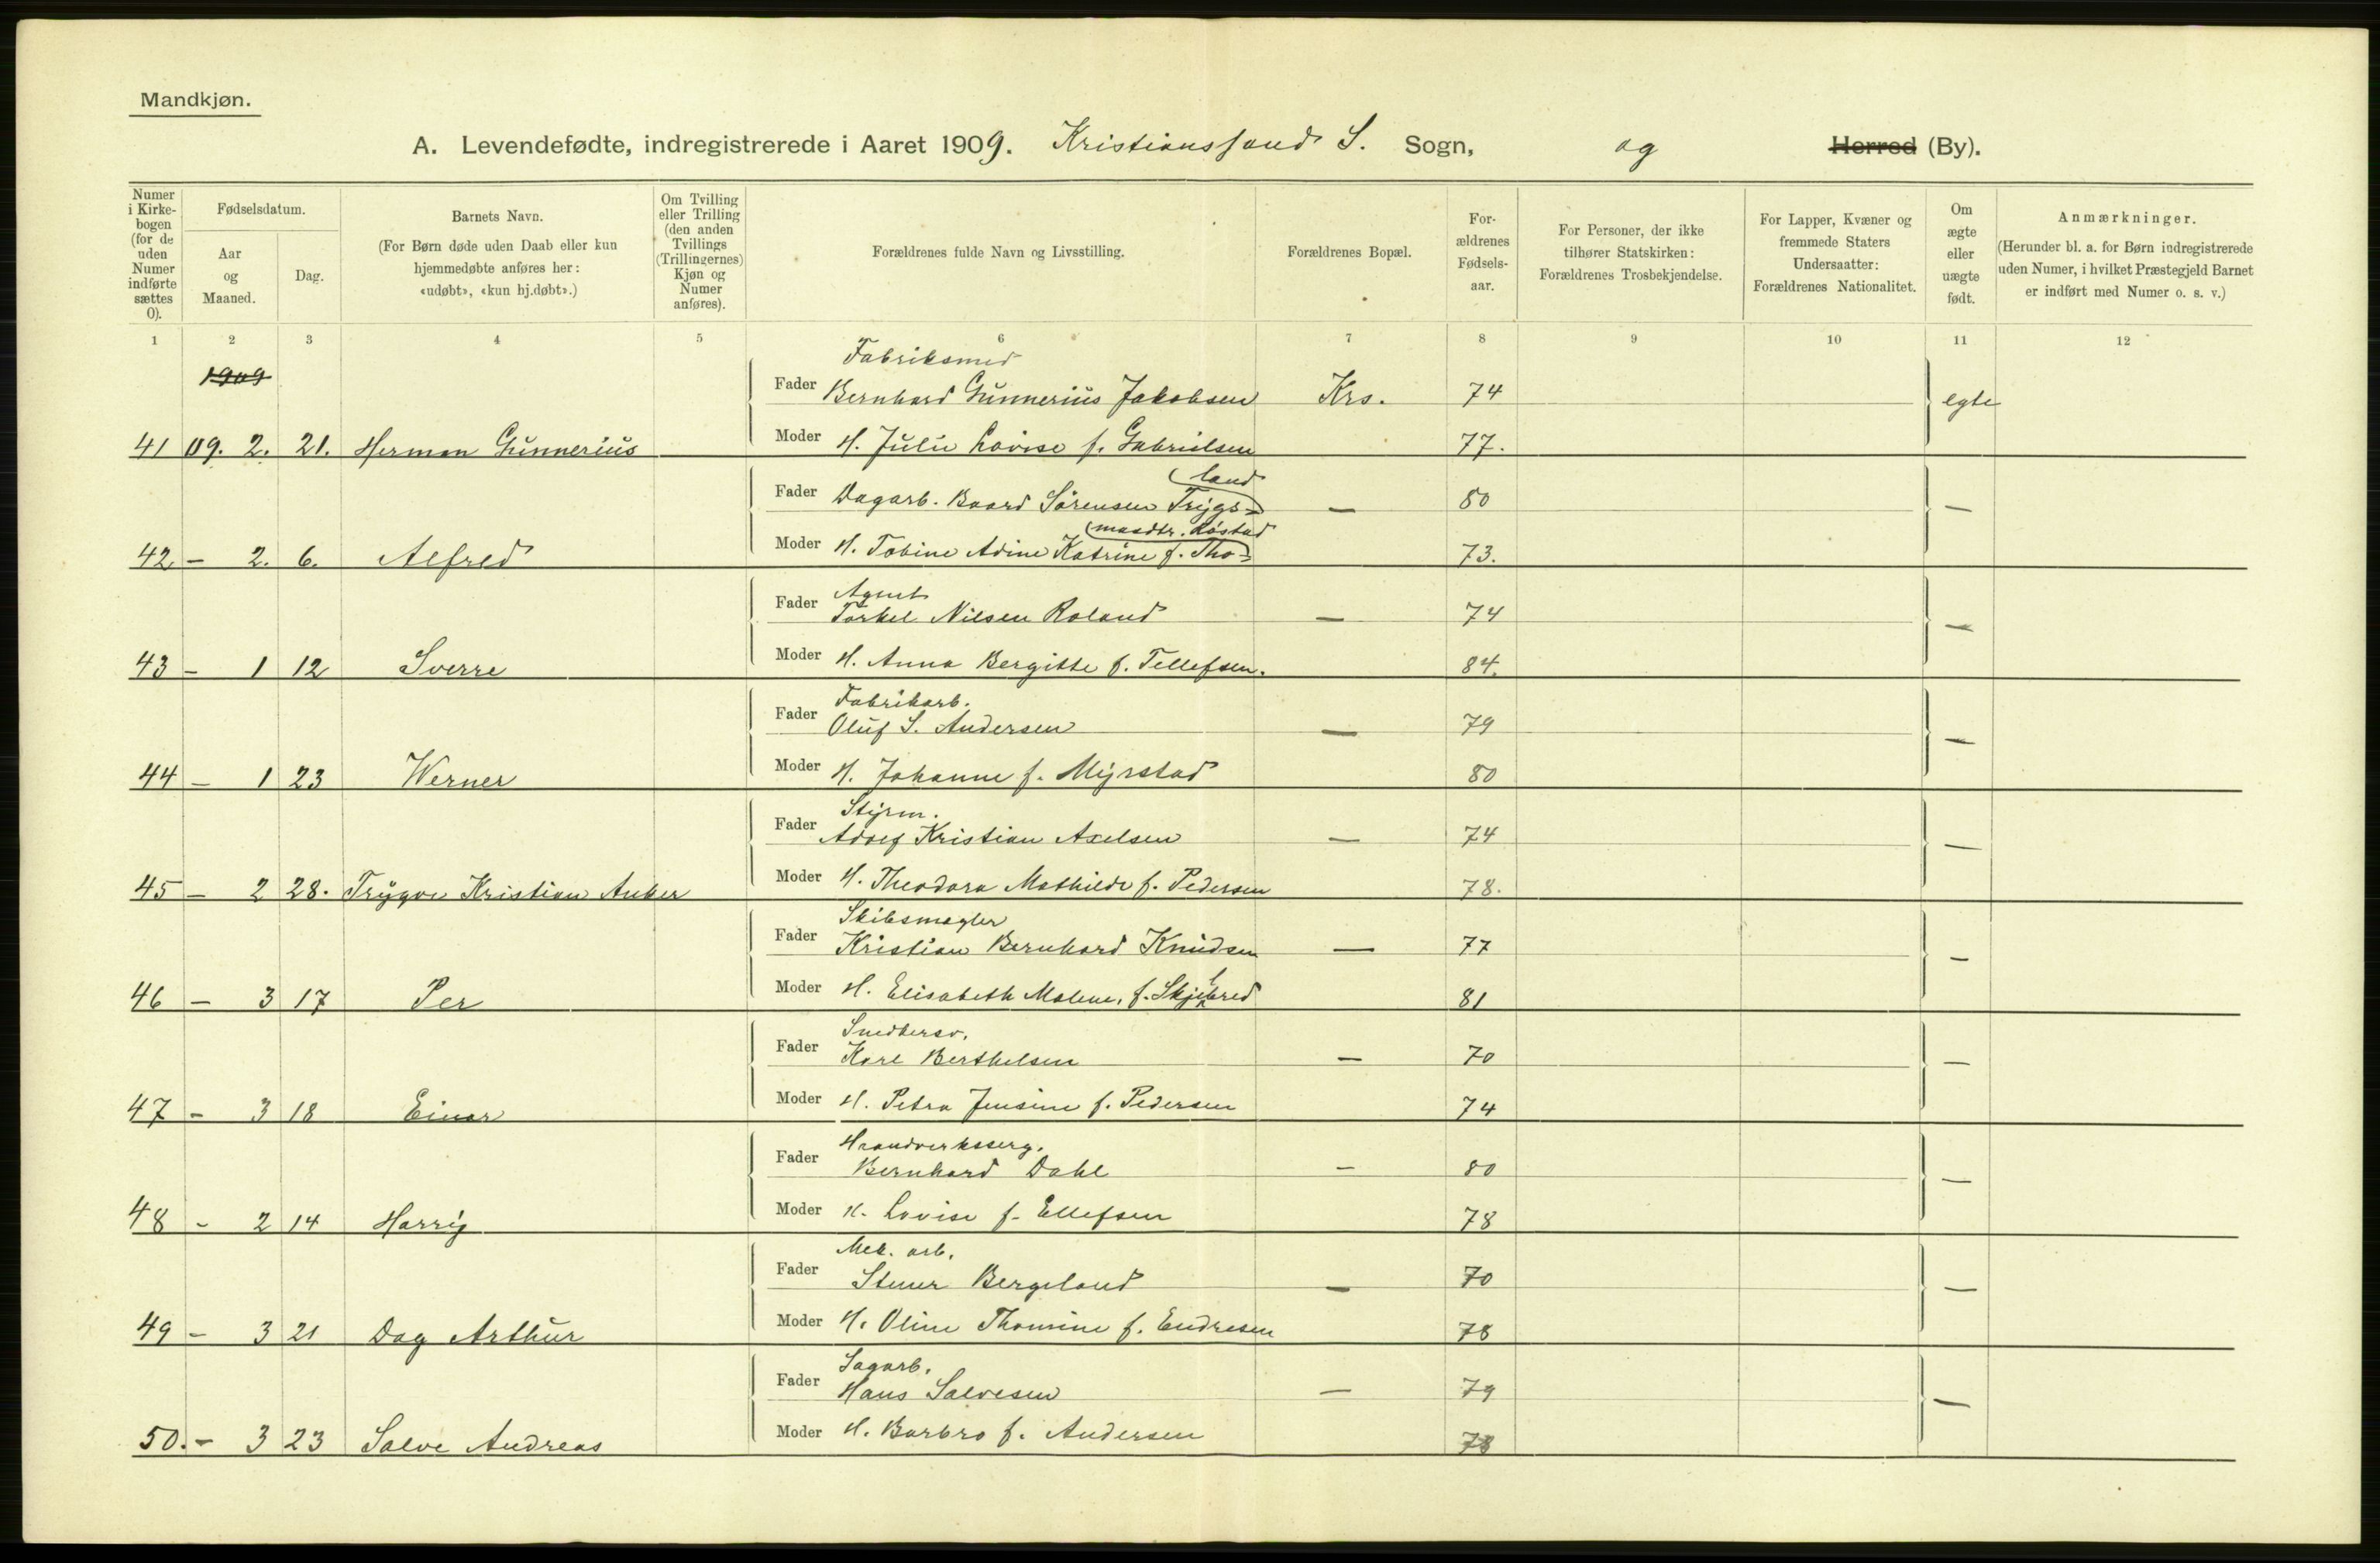 Mandkjøn.
A. Levendefødte, indregistrerede i Aaret 1909. Kristianssand S. Sogn, og Herred (By).
Numer i Kirkebogen (for de uden Numer indførte sættes 0).
Fødselsdatum.
Aar og Maaned.
Dag.
Barnets Navn.
(For Børn døde uden Daab eller kun hjemmedøbte anføres her: «udøbt», «kun hj.døbt».)
Om Tvilling eller Trilling (den anden Tvillings (Trillingernes) Kjøn og Numer anføres).
Forældrenes fulde Navn og Livsstilling.
Forældrenes Bopæl.
Forældrenes Fødselsaar.
For Personer, der ikke tilhører Statskirken: Forældrenes Trosbekjendelse.
For Lapper, Kvæner og fremmede Staters Undersaatter: Forældrenes Nationalitet.
Om ægte eller uægte født.
Anmærkninger.
(Herunder bl. a. for Børn indregistrerede uden Numer, i hvilket Præstegjeld Barnet er indført med Numer o. s. v.)
1 2 3 4 5 6 7 8 9 10 11 12
1909
Fabriksmed
Fader Bernhard Gunnerius Jakobsen Krs. 74 egte
41 09. 2. 21. Herman Gunnerius Moder H. Julie Lovise f. Gabrielsen 77.
land
Fader Dagarb. Baard Sørensen Trygs= — 80 —
mandtr. Røstad
42 – 2. 6. Alfred Moder H. Tobine Adine Katrine f. Tho= 73.
Agent
Fader Torkel Nilsen Roland — 74 —
43 – 1 12 Sverre Moder H. Anna Bergitte f. Tellefsen. 84.
Fabrikarb.
Fader Oluf S. Andersen — 79 —
44 – 1 23 Werner Moder H. Johanne f. Myrstad 80
Styrm.
Fader Adolf Kristian Axelsen — 74 —
45 – 2 28. Trygve Kristian Anker Moder H. Theodora Mathilde f. Pedersen 78.
Skibsmægler
Fader Kristian Bernhard Knudsen — 77 —
46 – 3 17 Per Moder H. Elisabeth Malene, f. Skjelbred 81
Snedkersv.
Fader Karl Berthelsen — 70 —
47 – 3 18 Einar Moder H. Petra Jensine f. Pedersen 74
Haandverksserg.
Fader Bernhard Dahl – 80 —
48 – 2 14 Harry Moder H. Lovise f. Ellefsen 78
Mek. arb.
Fader Stener Bergeland — 70 —
49 – 3 21 Dag Arthur Moder H. Oline Thomine f. Endresen 78
Sagarb.
Fader Hans Salvesen — 79 —
50. – 3 23 Salve Andreas Moder H. Barbro f. Andersen 78